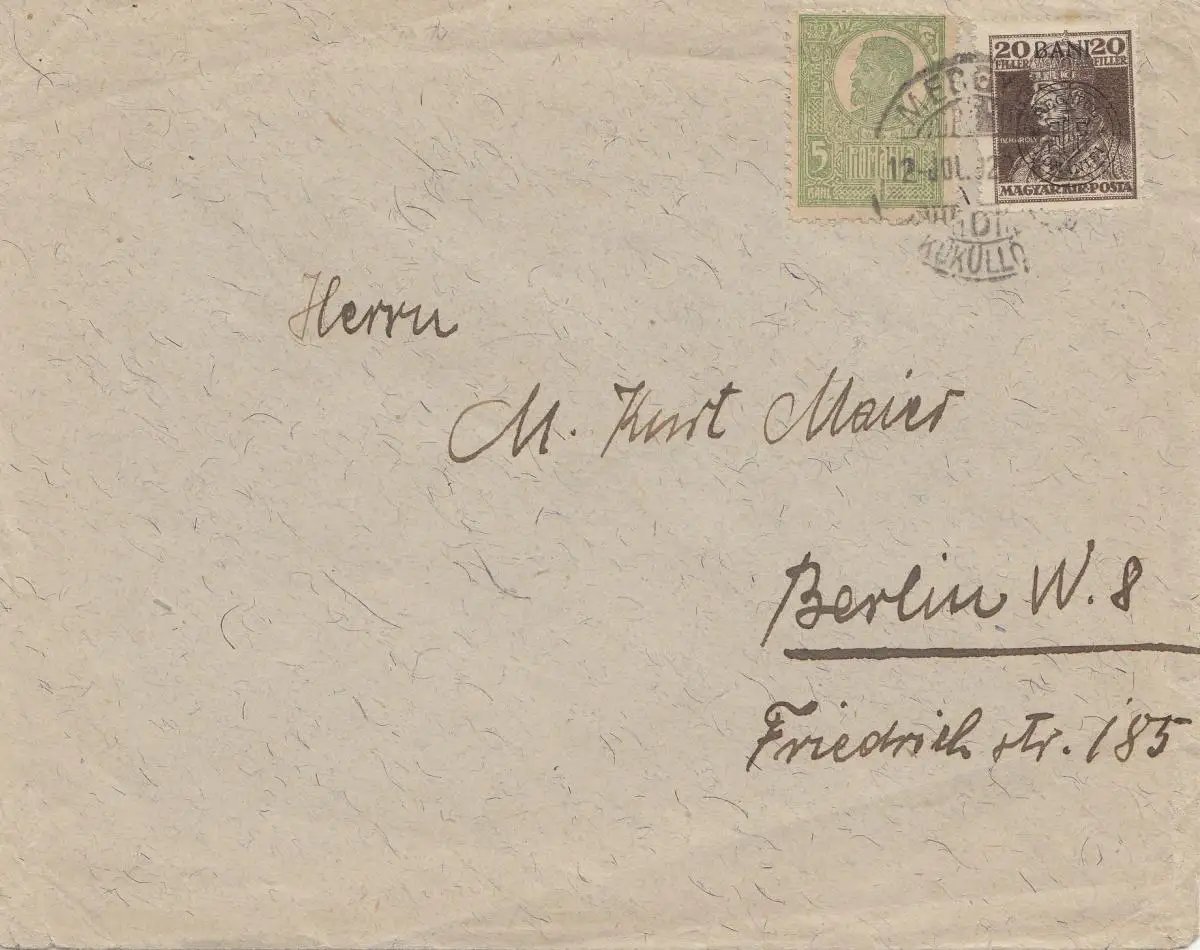 POSTA
5
ROMANIA
BANI
20 BANI 20
FILLER FILLER
MAGYAR KIR. POSTA
12 JUL. 92
KÜKÜLLŐ
Herrn
M. Kurt Maier
Berlin W. 8
Friedrich str. 185